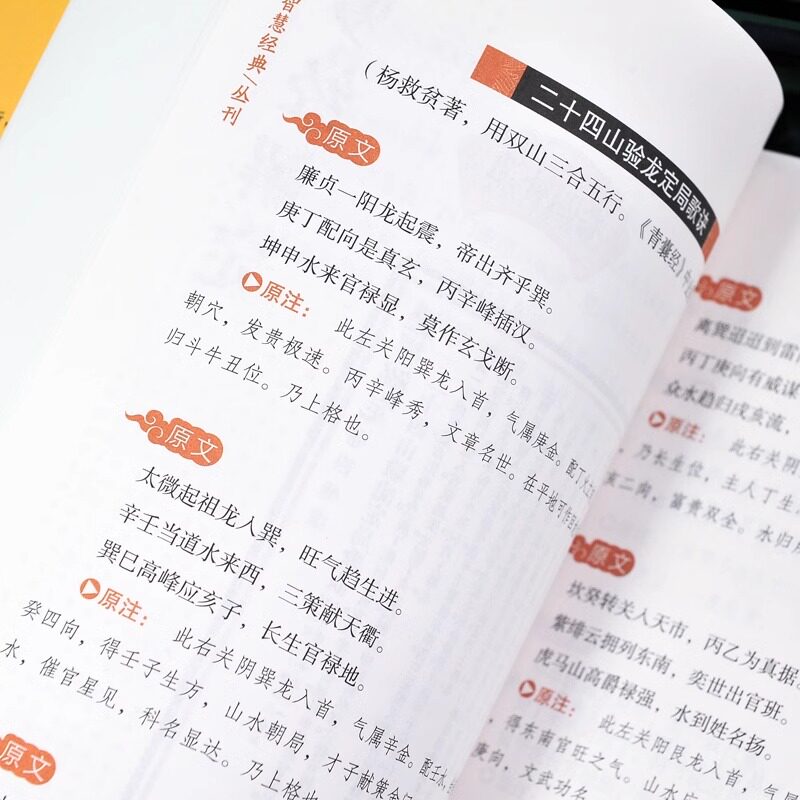 智慧经典/丛刊
二十四山验龙定局歌诀
（杨救贫著，用双山三合五行。《青囊经》中
原文
廉贞一阳龙起震，帝出齐乎巽。
庚丁配向是真玄，丙辛峰插汉。
坤申水来官禄显，莫作玄戈断。
原注：此左关阳巽龙入首，气属庚金。配丁
朝穴，发贵极速。丙辛峰秀，文章名世。在平地可作
归斗牛丑位。乃上格也。
原文
太微起祖龙入巽，旺气趋生进。
辛壬当道水来西，三策献天衢。
巽巳高峰应亥子，长生官禄地。
原注：此右关阴巽龙入首，气属辛金。配壬
癸四向，得壬子生方，山水朝局，才子献策金
水，催官星见，科名显达。乃上格也。
原文
原文
离巽逗逗到雷
丙丁庚向有威谋
众水趋归戌亥流，
原注：此右关阴
，乃长生位，主人丁生
亥二向，富贵双全。水归
原文
坎癸转关入天市，丙乙为真据
紫绯云拥列东南，奕世出官班。
虎马山高爵禄强，水到姓名扬。
原注：此左关阳艮龙入首，气属
，得东南官旺之气。山水
庚向，文武功名